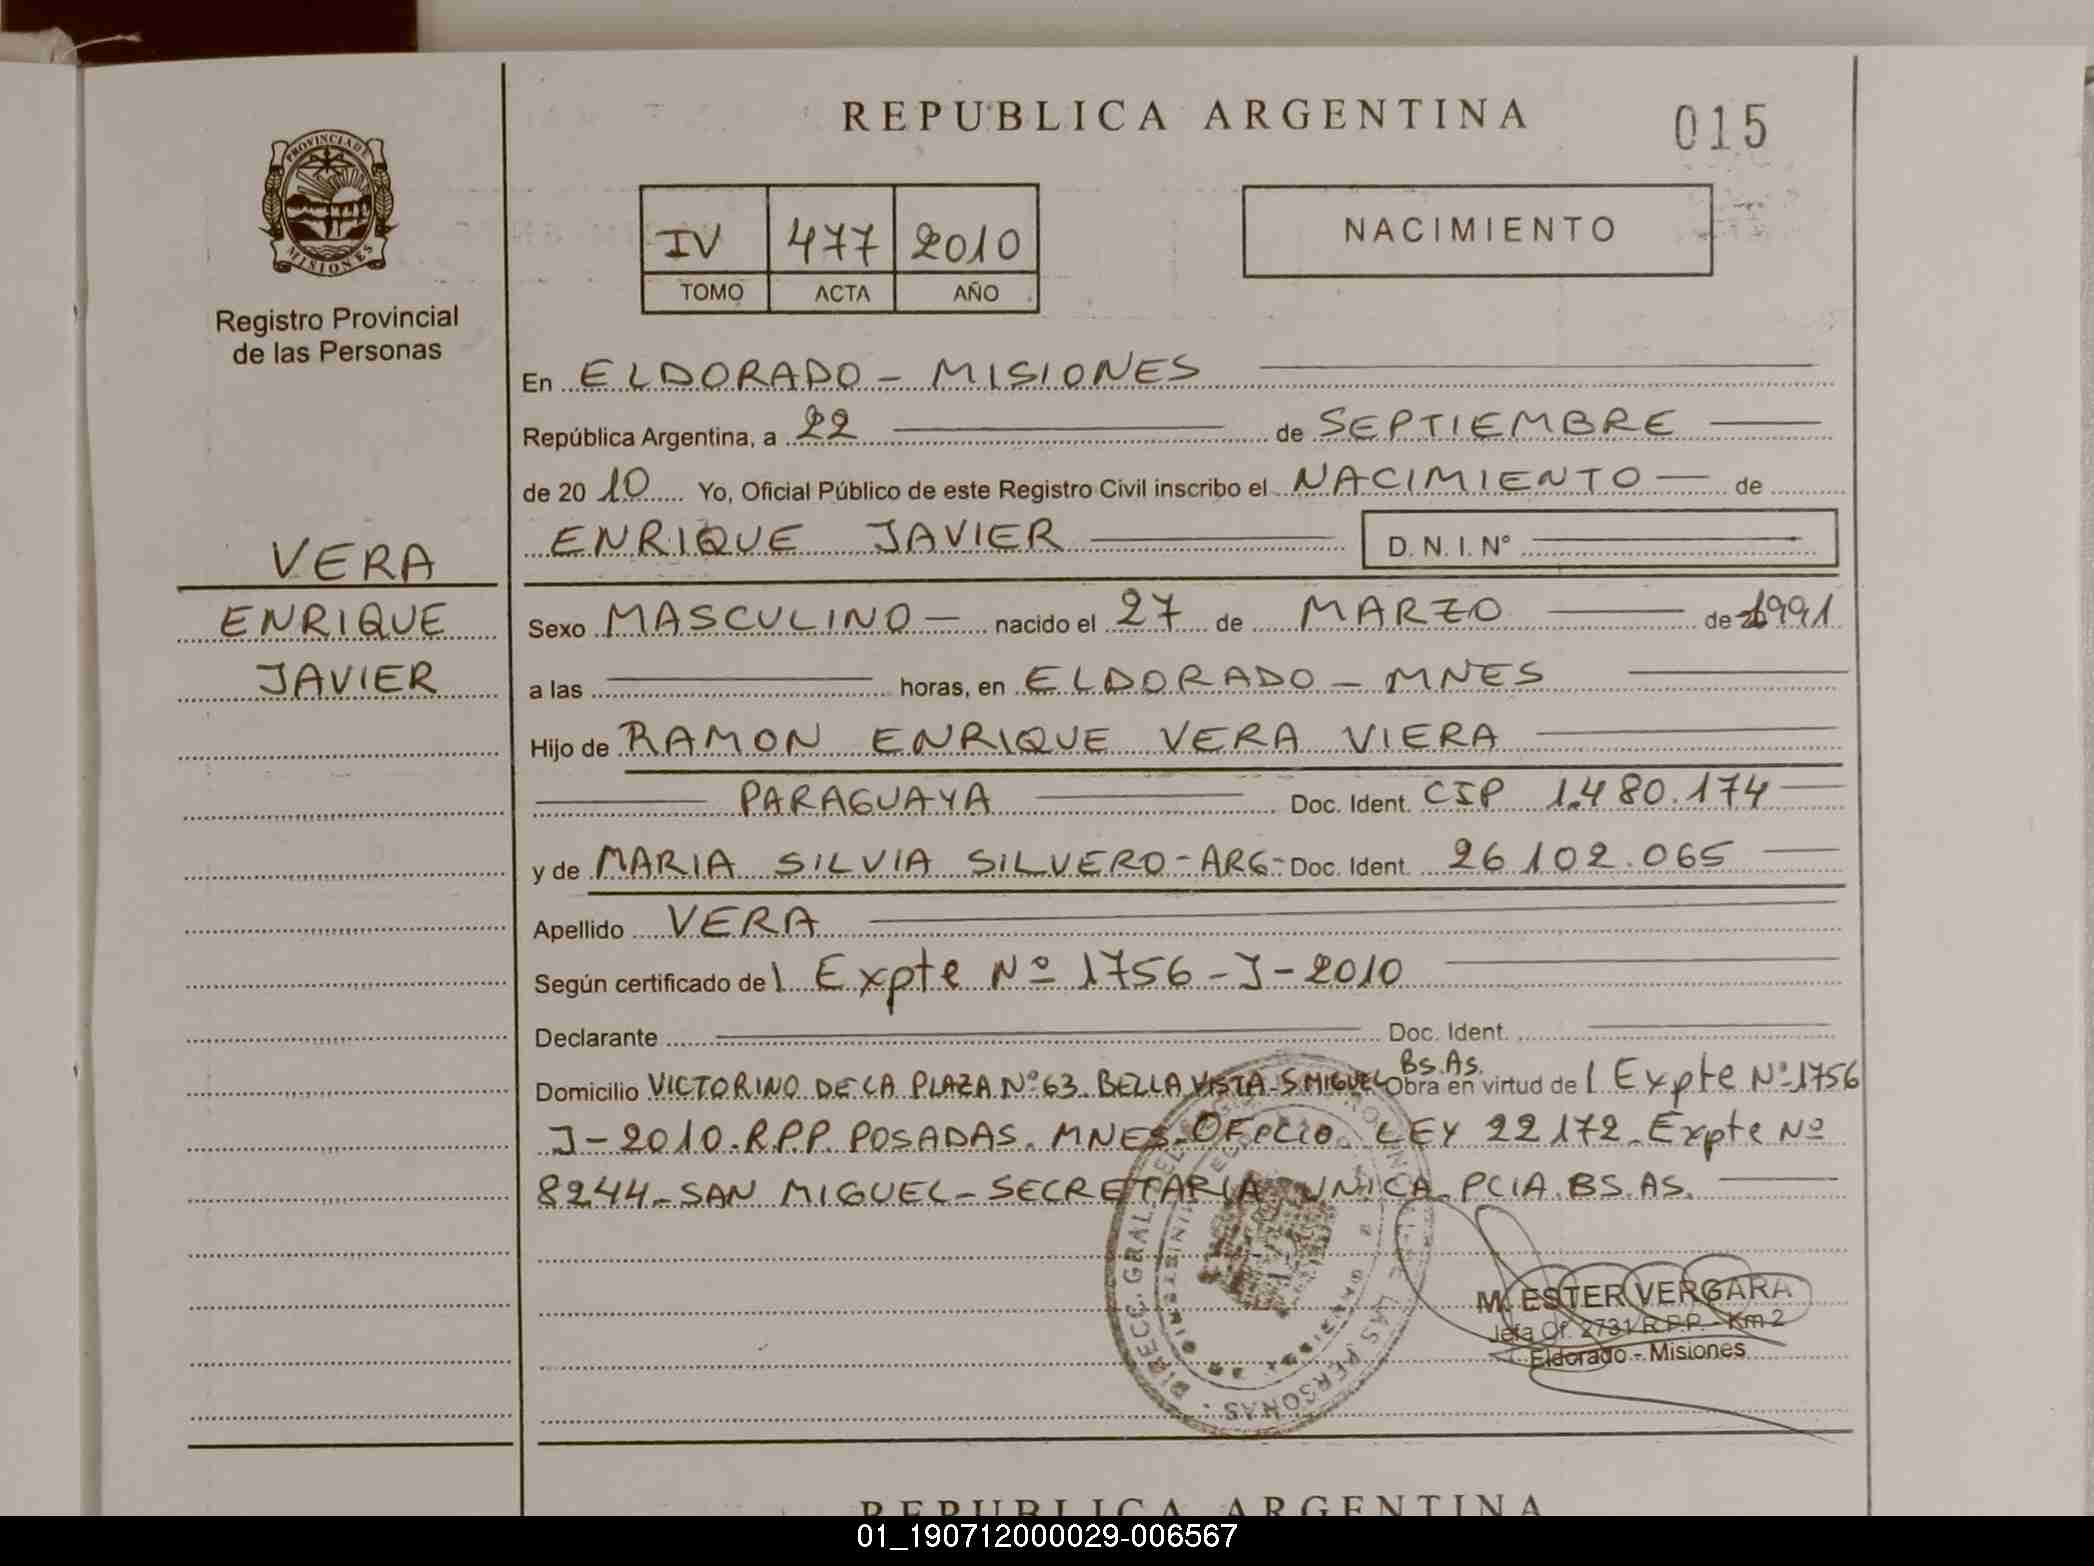 REPUBLICA ARGENTINA
015
PROVINCIA DE
MISIONES
Registro Provincial
de las Personas
IV 477 2010
TOMO ACTA AÑO
NACIMIENTO
En ELDORADO - MISIONES
República Argentina, a 22 de SEPTIEMBRE
de 20 10 Yo, Oficial Público de este Registro Civil inscribo el NACIMIENTO de
VERA
ENRIQUE JAVIER D. N. I. Nº
ENRIQUE
Sexo MASCULINO nacido el 27 de MARZO de 1991
JAVIER
a las horas, en ELDORADO - MNES
Hijo de RAMON ENRIQUE VERA VIERA
PARAGUAYA Doc. Ident. CIP 1.480.174
y de MARIA SILVIA SILVERO - ARG - Doc. Ident. 26.102.065
Apellido VERA
Según certificado de l Expte Nº 1756 - J - 2010
Declarante Doc. Ident.
Domicilio VICTORINO DE LA PLAZA Nº 63. BELLA VISTA - S.MIGUEL Bs.As. Obra en virtud de l Expte Nº 1756
J - 2010. R.P.P. POSADAS. MNES. LEY 22172. Expte Nº
8244 - SAN MIGUEL - SECRETARIA UNICA. PCIA. BS. AS.
DIRECC. GRAL. LAS PERSONAS
M. ESTER VERGARA
Jefa Of. 2731 R.P.P. - Km 2
Eldorado - Misiones
REPUBLICA ARGENTINA
01_190712000029-006567